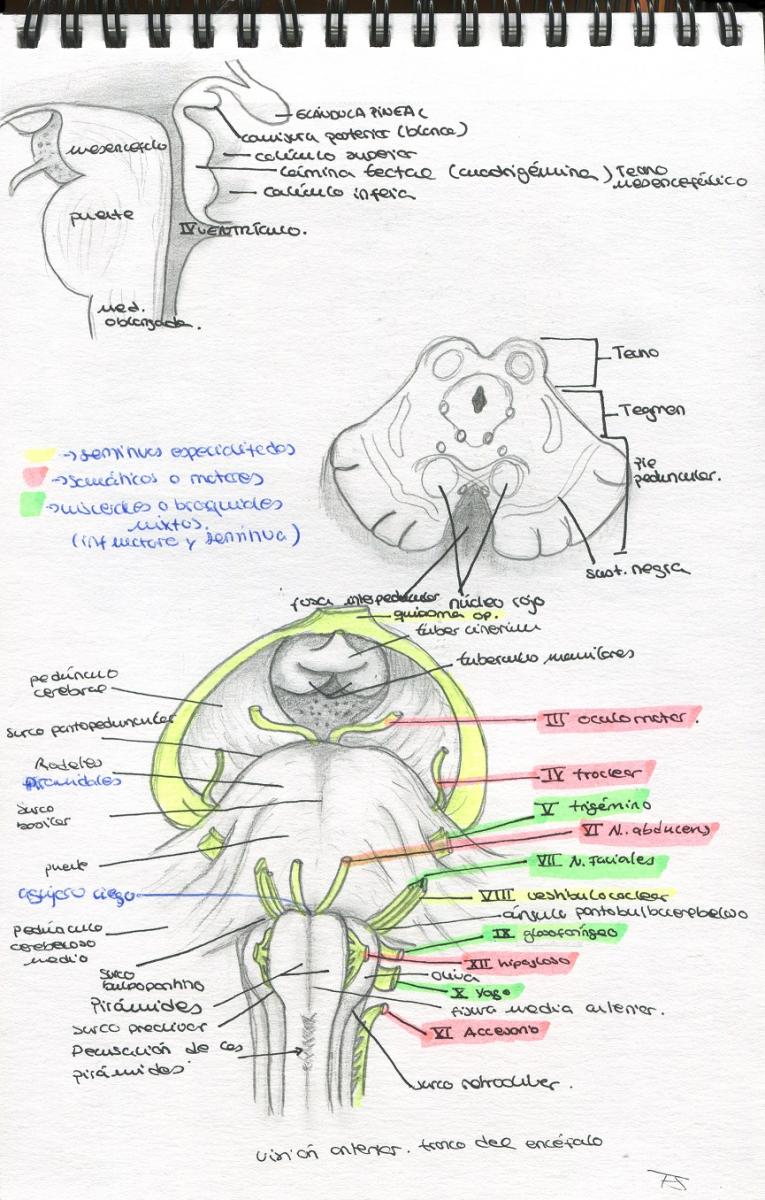 GLÁNDULA PINEAL
comisura posterior (blanca)
colículo superior
Lámina tectal (cuadrigémina) Tecno
mesencefálico
colículo inferior
IV VENTRÍCULO.
mesencéfalo
puente
Med.
oblongada.
Tecno
Tegmen
pie
peduncular.
sust. negra
núcleo rojo
fosa interpeduncular
→ sensitivos especializados
→ somáticos o motores
→ viscerales o branquiales
mixtos.
quiasma op.
tuber cinerium
tuberculo mamilares
III oculomotor.
IV troclear
V trigémino
VI N. abducens
VII N. faciales
VIII vestibulococlear
ángulo pontobulbocerebeloso
IX glosofaríngeo
XII hipogloso
oliva
X vago
fisura media anterior.
VI Accesorio
surco retroolivar.
pedúnculo
cerebral
surco pontopeduncular
Rodetes
piramidales
surco
basilar
puente
agujero ciego
pedúnculo
cerebeloso
medio
surco
bulbopontino
Pirámides
surco preolivar
Decusación de las
pirámides
visión anterior. tronco del encéfalo